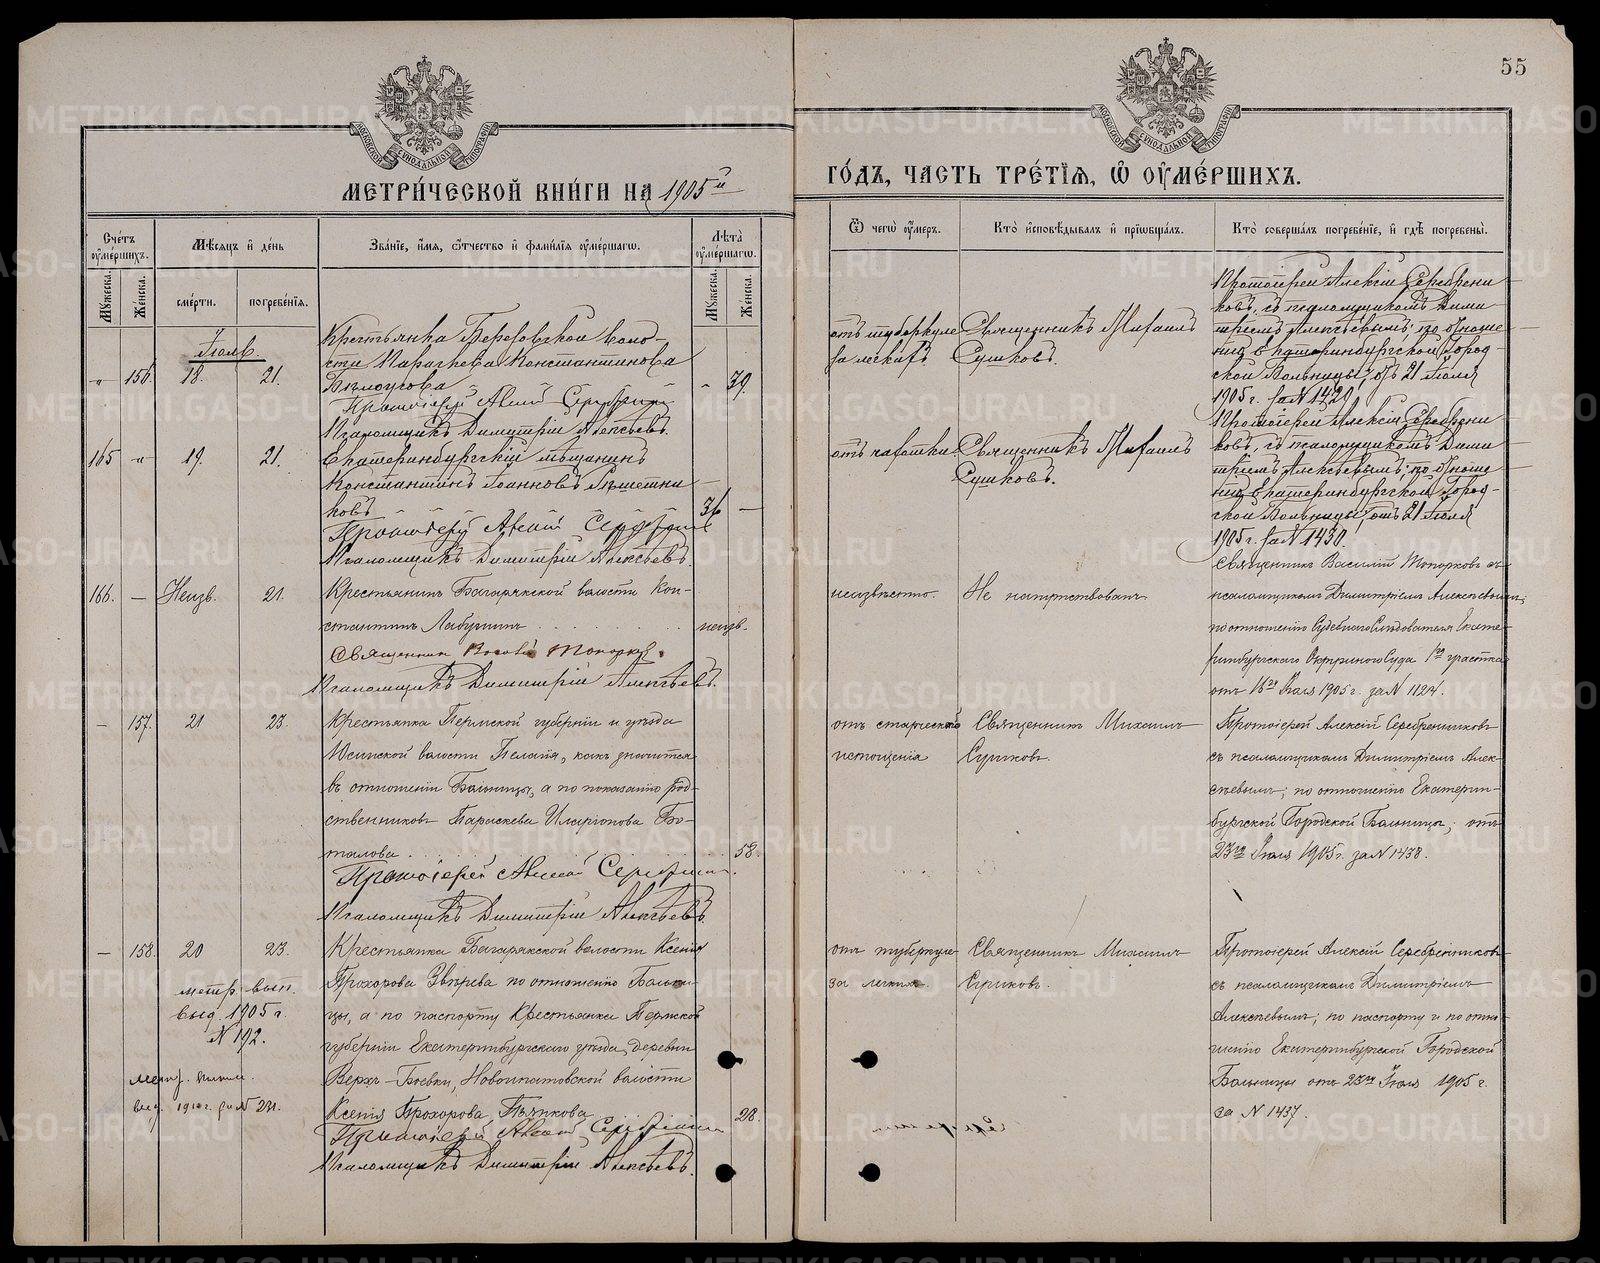 55
МЕТРИ́ЧЕСКОЙ КНИ́ГИ НА 1905й ГО́ДЪ, ЧАСТЬ ТРЕ́ТІѦ, Ѿ ОУМЕ́РШИХЪ.
Сче́тъ оуме́ршихъ.
Мꙋжеска.
Же́нска.
Мѣсяцъ и де́нь
сме́рти.
погребе́нїѧ.
Зва́нїе, и́мѧ, ѻ́тчество и фами́лїѧ оуме́ршагѡ.
Лѣта̀ оуме́ршагѡ.
Мꙋжеска.
Же́нска.
Ѿ чегѡ̀ оу́меръ.
Кто̀ и҆сповѣ́дывалъ и҆ прїѡбща́лъ.
Кто̀ соверша́лъ погребе́нїе, и҆ гдѣ̀ погребены̀.
Іюль
„ 156. 18. 21.
Крестьянка Березовской воло-
сти Параскева Константинова
Бѣлоусова
„ 39.
Протоіерей Алексій Серебренн
Псаломщикъ Димитрій Алексѣевъ.
отъ туберкуле
за легкихъ
Священникъ Михаилъ
Сушковъ.
Протоіерей Алексій Серебрени
ковъ, съ псаломщикомъ Дими
тріемъ Алексѣевымъ; по отноше
нію Екатеринбургской Город-
ской Больницы, отъ 21 Іюля
1905 г. за N 1429.
165 -„- 19. 21.
Екатеринбургскій мѣщанинъ
Константинъ Іоанновъ Рѣшетни
ковъ
36 —
Протоіерей Алексій Серебренн
Псаломщикъ Димитрій Алексѣевъ.
отъ чахотки.
Священникъ Михаилъ
Сушковъ.
Протоіерей Алексій Серебрени
ковъ, съ псаломщикомъ Дими
тріемъ Алексѣевымъ; по отноше
нію Екатеринбургской Город-
ской Больницы, отъ 21 Іюля
1905 г. за N 1430.
166. — Неизв. 21.
Крестьянинъ Багарякской волости Кон-
стантинъ Лабунинъ . . . . . . неизв.
Священник Василій Топорков.
Псаломщикъ Димитрій Алексѣевъ.
неизвѣстно.
Не напутствованъ
Священникъ Василій Топорковъ съ
псаломщикомъ Димитріемъ Алексѣевымъ;
по отношенію Судебнаго Слѣдователя Екате-
ринбургскаго Окружного Суда 1го участка
отъ 16го Іюля 1905 г. за N 1124.
— 157. 21 23.
Крестьянка Пермской губерніи и уѣзда
волости Пелагія, какъ значится
въ отношеніи Больницы, а по показанію род-
ственниковъ Параскева Иларіонова Бо-
талова . . . . . . 58.
Протоіерей Алексій Серебренн
Псаломщикъ Димитрій Алексѣевъ.
отъ старческаго
истощенія
Священникъ Михаилъ
Сушковъ
Протоіерей Алексій Серебренниковъ
съ псаломщикомъ Димитріемъ Алек-
сѣевымъ; по отношенію Екатерин-
бургской Городской Больницы, отъ
23го Іюля 1905 г. за N 1438.
— 158. 20 23.
метр. вып.
выд. 1905 г.
N 192.
метр. выпис.
выд. 1910 г. за N 231.
Крестьянка Багарякской волости Ксенія
Прохорова Звѣрева по отношенію Больни-
цы, а по паспорту Крестьянка Пермской
губерніи Екатеринбургскаго уѣзда, деревни
Верхъ-Боевки, Новоипатовской волости
Ксенія Прохорова Пьянкова 28.
Протоіерей Алексій Серебренн
Псаломщикъ Димитрій Алексѣевъ.
отъ туберкуле-
за легкихъ.
Священникъ Михаилъ
Сушковъ.
Протоіерей Алексій Серебренниковъ
съ псаломщикомъ Димитріемъ
Алексѣевымъ; по паспорту и по отно-
шенію Екатеринбургской Городской
Больницы отъ 23го Іюля 1905 г.
за N 1437.
METRIKI.GASO-URAL.RU